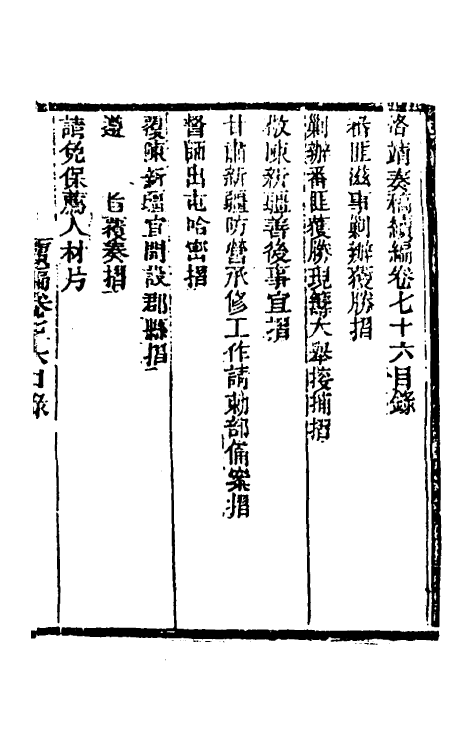 恪靖奏稿續編卷七十六目錄
番匪滋事剿辦獲勝摺
剿辦番匪獲勝現籌大舉搜捕摺
敬陳新疆善後事宜摺
甘肅新疆防營承修工作請勅部備案摺
督師出屯哈密摺
覆陳新疆宜開設郡縣摺
遵　旨覆奏摺
請免保薦人材片
續編卷七十六目錄